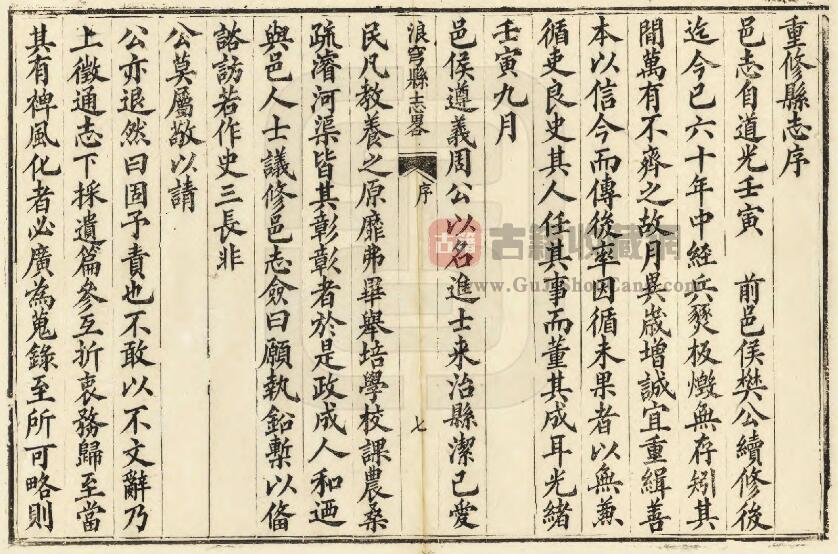 重修縣志序
邑志自道光壬寅　前邑侯樊公續修後
迄今已六十年中經兵燹板燬無存矧其
間萬有不齊之故月異歲增誠宜重緝善
本以信今而傳後率因循未果者以無兼
循吏良史其人任其事而董其成耳光緒
壬寅九月
邑侯遵義周公以名進士来治縣潔己愛
浪穹縣志畧
序
七
民凡教養之原靡弗畢舉培學校課農桑
疏濬河渠皆其彰彰者於是政成人和迺
與邑人士議修邑志僉曰願執鉛槧以偹
諮訪若作史三長非
公莫屬敢以請
公亦退然曰固予責也不敢以不文辭乃
上徵通志下採遺篇參互折衷務歸至當
其有裨風化者必廣為蒐錄至所可略則
古籍收藏網
www.GuJiShouCang.com